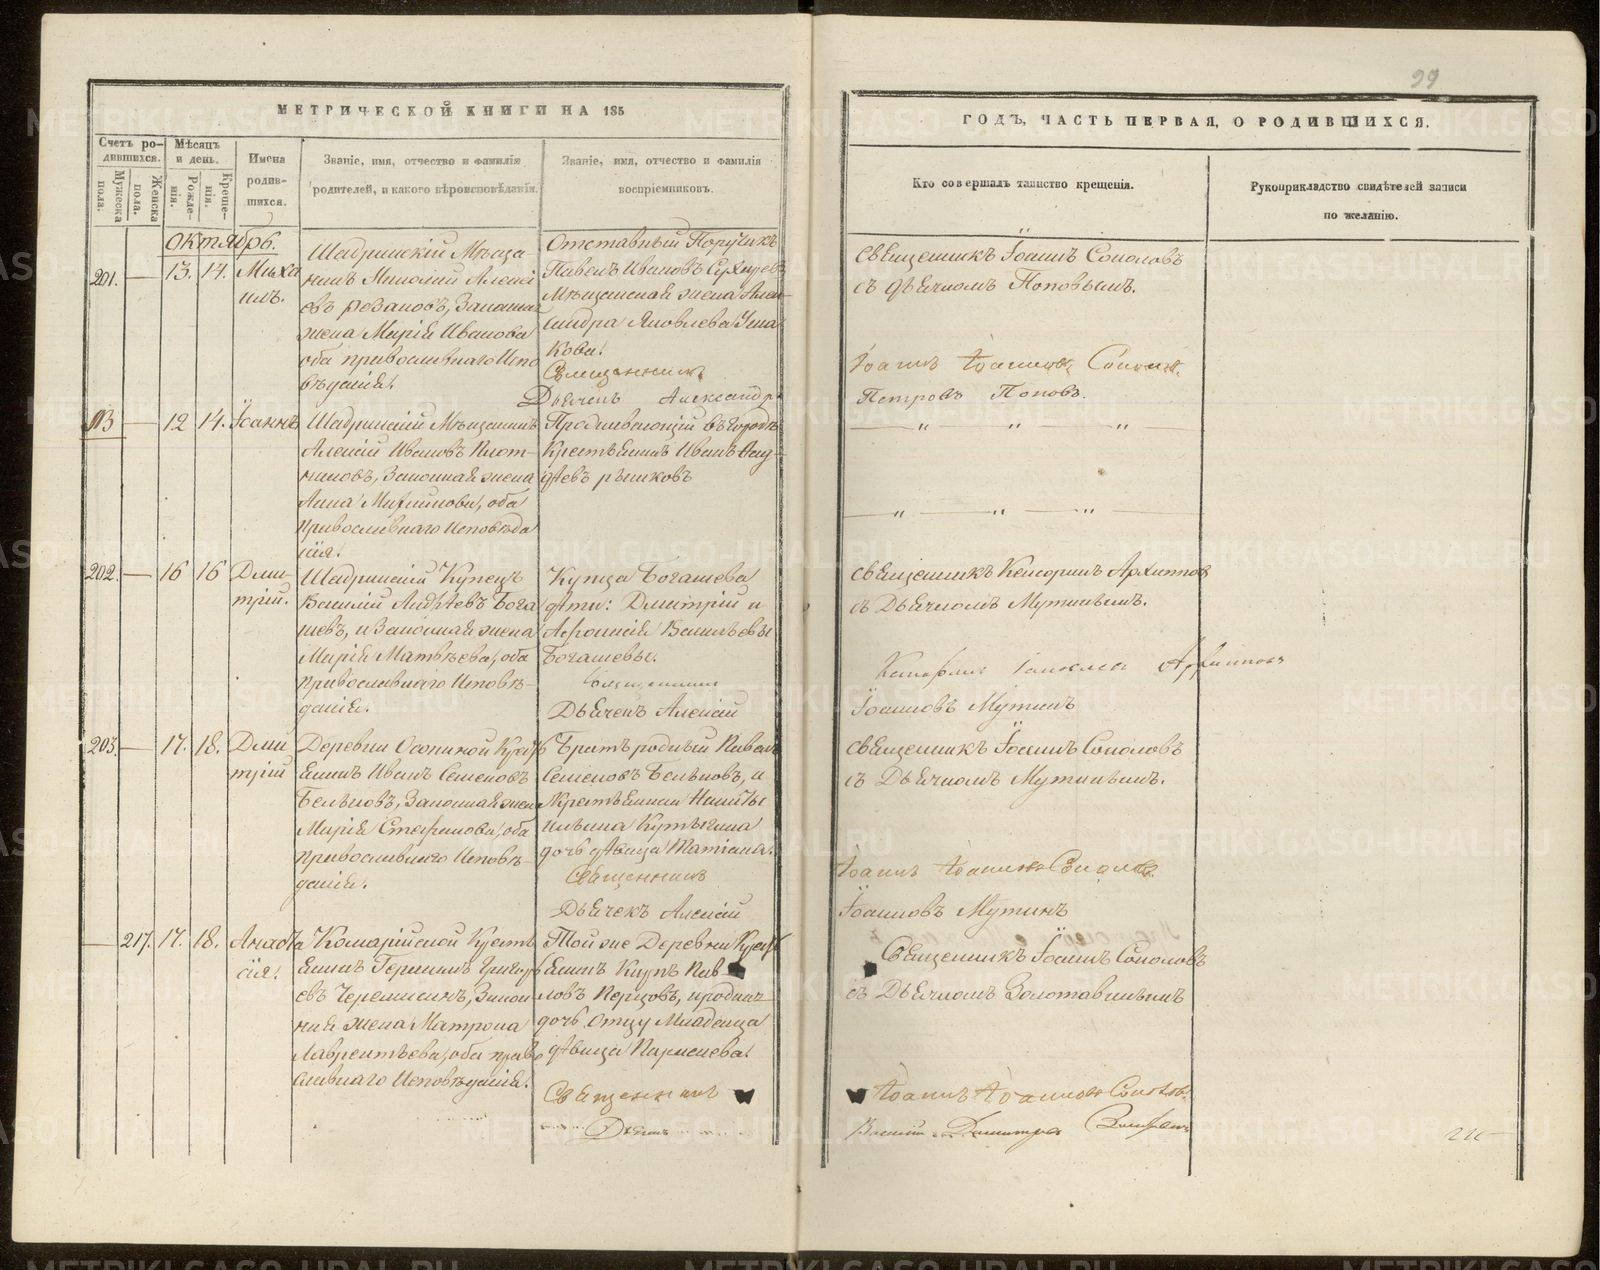 29
МЕТРИЧЕСКОЙ КНИГИ НА 185
ГОДЪ, ЧАСТЬ ПЕРВАЯ, О РОДИВШИХСЯ.
Счетъ ро-
дившихся.
Мужеска
пола.
Женска
пола.
Мѣсяцъ
и день.
Рожде-
нія.
Креще-
нія.
Имена
родив-
шихся.
Званіе, имя, отчество и фамилія
родителей, и какого вѣроисповѣданія.
Званіе, имя, отчество и фамилія
воспріемниковъ.
Кто совершалъ таинство крещенія.
Рукоприкладство свидѣтелей записи
по желанію.
октябрь.
201. — 13. 14. Миха
илъ.
Шадринскій Мѣща
нинъ Николай Алексѣ
евъ Резановъ, Законная
жена Марія Иванова
оба православнаго Испо
вѣданія.
Отставный Поручикъ
Павелъ Ивановъ
Мѣщанская жена Алек-
сандра Яковлева Уша
кова.
Священникъ
Дьячекъ Александръ
Священникъ Іоаннъ Соколовъ
съ дьячкомъ Поповымъ.
Іоаннъ Іоанновъ Соколовъ.
Петровъ Поповъ.
— 12 14. Іоаннъ
Шадринскій Мѣщанинъ
Алексѣй Ивановъ Плот-
никовъ, Законная жена
Анна, оба
православнаго Исповѣда
нія.
Проживающій въ городѣ
Крестьянинъ Иванъ
— " — " — "
— " — " — "
202. — 16 16 Дми-
трій.
Шадринскій Купецъ
Василій Андреевъ Бога
шевъ, и Законная жена
Марія Матвѣева, оба
православнаго Исповѣ-
данія.
Купца Богашева
дѣти: Дмитрій и
Афонасія Васильевы
Богашевы.
Священникъ
Дьячекъ Алексѣй
Священникъ Кенсоринъ Архиповъ
съ Дьячкомъ Мутинымъ.
Кенсоринъ Архиповъ
Іоанновъ Мутинъ
203. — 17. 18. Дми
трій
Деревни Осѣевой Крестъ
янинъ Иванъ Семеновъ
Бельковъ, Законная жена
Марія Стефанова, оба
православнаго Исповѣ-
данія.
Братъ родный Павелъ
Семеновъ Бельковъ, и
Крестьянина Никиты
Ильина Кутыгина
дочь дѣвица Татіана.
Священникъ
Дьячекъ Алексѣй
Священникъ Іоаннъ Соколовъ
съ Дьячкомъ Мутинымъ.
Іоаннъ Іоанновъ Соколовъ
Іоанновъ Мутинъ
— 217. 17. 18. Анаста
сія.
Крестъ
янинъ Григорь
евъ Черемисинъ, Закон
ная жена Матрона
Лаврентьева, оба право
славнаго Исповѣданія.
Той же Деревни Крестъ
янинъ Карпъ Пав
ловъ Перцовъ, и родная
дочь отцу Младенца
дѣвица
Священникъ
Дьячекъ
Священникъ Іоаннъ Соколовъ
съ Дьячкомъ Золотавинымъ
Іоаннъ Іоанновъ Соколовъ.
Василій